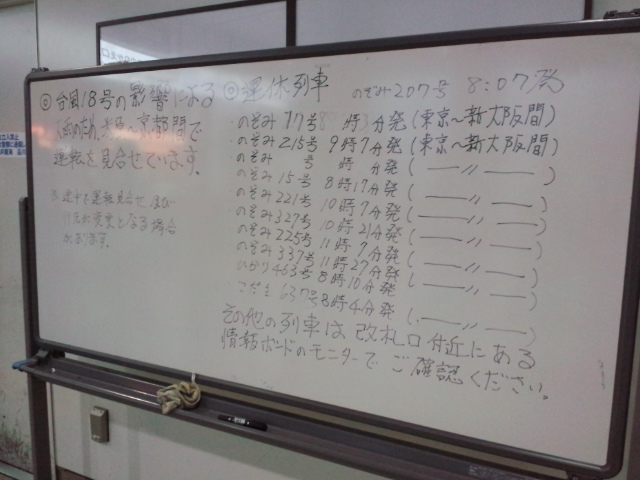 ◎台風18号の影響による
雨のため、米原～京都間で
運転を見合せています。
※途中で運転見合せ、及び
行先が変更となる場合
があります。
◎運休列車
のぞみ207号 8:07発
のぞみ 77号 8時3分発(東京～新大阪間)
のぞみ215号 9時7分発(東京～新大阪間)
のぞみ 号 時 分発( 〃 )
のぞみ 15号 8時17分発( 〃 )
のぞみ221号 10時7分発( 〃 )
のぞみ327号 10時21分発( 〃 )
のぞみ225号 11時7分発( 〃 )
のぞみ337号 11時27分発( 〃 )
ひかり463号 8時10分発
こだま 637号 8時4分発( 〃 )
その他の列車は改札口付近にある
情報ボードのモニターでご確認ください。